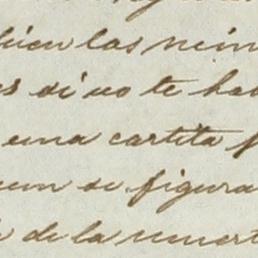 bien las nein
es si uo te hab
una cartita p
uem se figura
de la muert